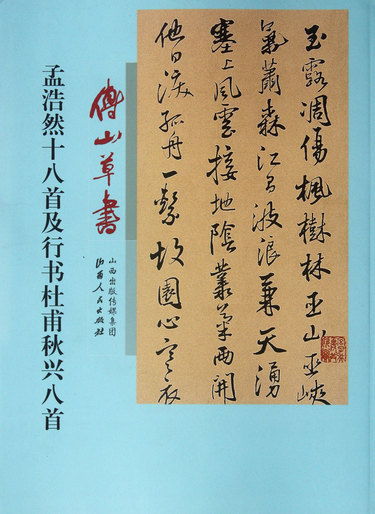 玉露凋傷楓樹林巫山巫峽
氣蕭森江間波浪兼天涌
塞上風雲接地陰叢菊兩開
他日淚孤舟一繫故園心寒衣
傅山草書
山西出版传媒集团
山西人民出版社
孟浩然十八首及行书杜甫秋兴八首